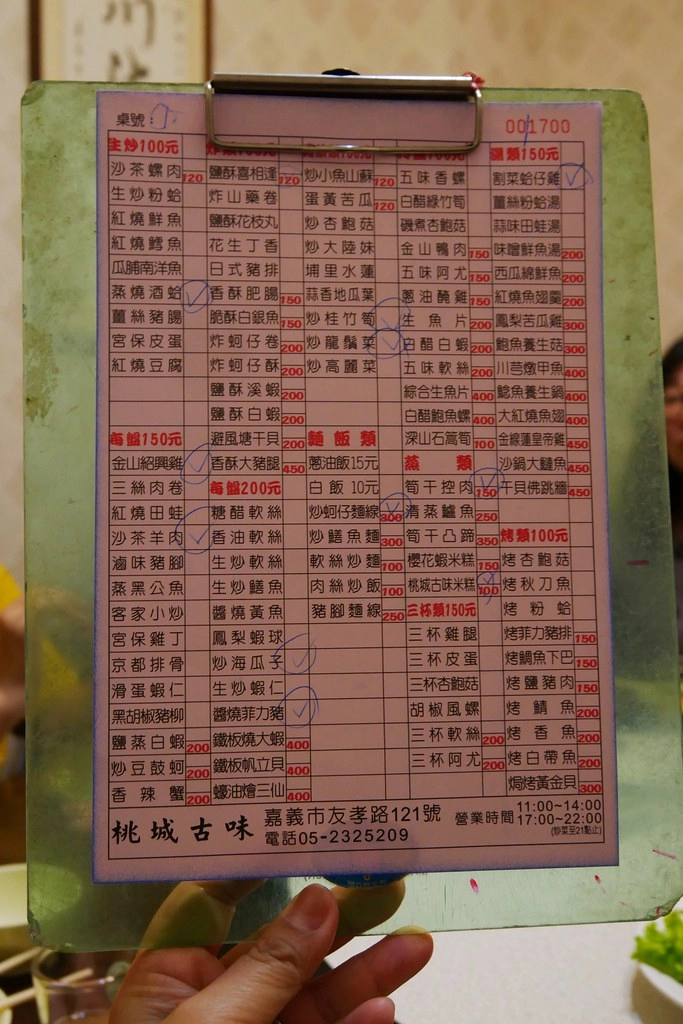 桌號：
001700
主炒100元
沙茶螺肉 120
生炒粉蛤
紅燒鮮魚
紅燒鱈魚
瓜脯南洋魚
蒸燒酒蛤
薑絲豬腸
宮保皮蛋
紅燒豆腐
每盤150元
金山紹興雞
三絲肉卷
紅燒田蛙
沙茶羊肉
滷味豬腳
蒸黑公魚
客家小炒
宮保雞丁
京都排骨
滑蛋蝦仁
黑胡椒豬柳
鹽蒸白蝦 200
炒豆鼓蚵 200
香辣蟹 200
鹽酥喜相逢 120
炸山藥卷
鹽酥花枝丸
花生丁香
日式豬排
香酥肥腸 150
脆酥白銀魚 150
炸蚵仔卷 200
炸蚵仔酥 200
鹽酥溪蝦 200
鹽酥白蝦 200
避風塘干貝 200
香酥大豬腿 450
每盤200元
糖醋軟絲
香油軟絲
生炒軟絲
生炒鱔魚
醬燒黃魚
鳳梨蝦球
炒海瓜子
生炒蝦仁
醬燒菲力豬
鐵板燒大蝦 400
鐵板帆立貝 400
蠔油燴三仙 400
炒小魚山蘇 120
蛋黃苦瓜 120
炒杏鮑菇
炒大陸妹
埔里水蓮
蒜香地瓜葉
炒桂竹筍
炒龍鬚菜
炒高麗菜
麵飯類
蔥油飯15元
白飯10元
炒蚵仔麵線 300
炒鱔魚麵 300
軟絲炒麵 100
肉絲炒飯 100
豬腳麵線 250
五味香螺
白醋綠竹筍
磯煮杏鮑菇
金山鴨肉 150
五味阿尤 150
蔥油醃雞 150
生魚片 200
白醋白蝦 200
五味軟絲 200
綜合生魚片 400
白醋鮑魚螺 400
深山石篙筍 100
蒸類
筍干控肉 150
清蒸鱸魚 250
筍干凸蹄 350
櫻花蝦米糕 150
桃城古味米糕 100
三杯類150元
三杯雞腿
三杯皮蛋
三杯杏鮑菇
胡椒風螺
三杯軟絲 200
三杯阿尤 200
湯類150元
割菜蛤仔雞
薑絲粉蛤湯
蒜味田蛙湯
味噌鮮魚湯 200
西瓜綿鮮魚 200
紅燒魚翅羹 200
鳳梨苦瓜雞 300
鮑魚養生菇 300
川芎燉甲魚 400
鯰魚養生鍋 400
大紅燒魚翅 400
金線蓮皇帝雞 450
沙鍋大鰱魚 450
干貝佛跳牆 450
烤類100元
烤杏鮑菇
烤秋刀魚
烤粉蛤
烤菲力豬排 150
烤鯛魚下巴 150
烤鹽豬肉 150
烤鯖魚 200
烤香魚 200
烤白帶魚 200
焗烤黃金貝 300
桃城古味
嘉義市友孝路121號
電話05-2325209
營業時間 11:00~14:00
17:00~22:00
(炒菜至21點止)